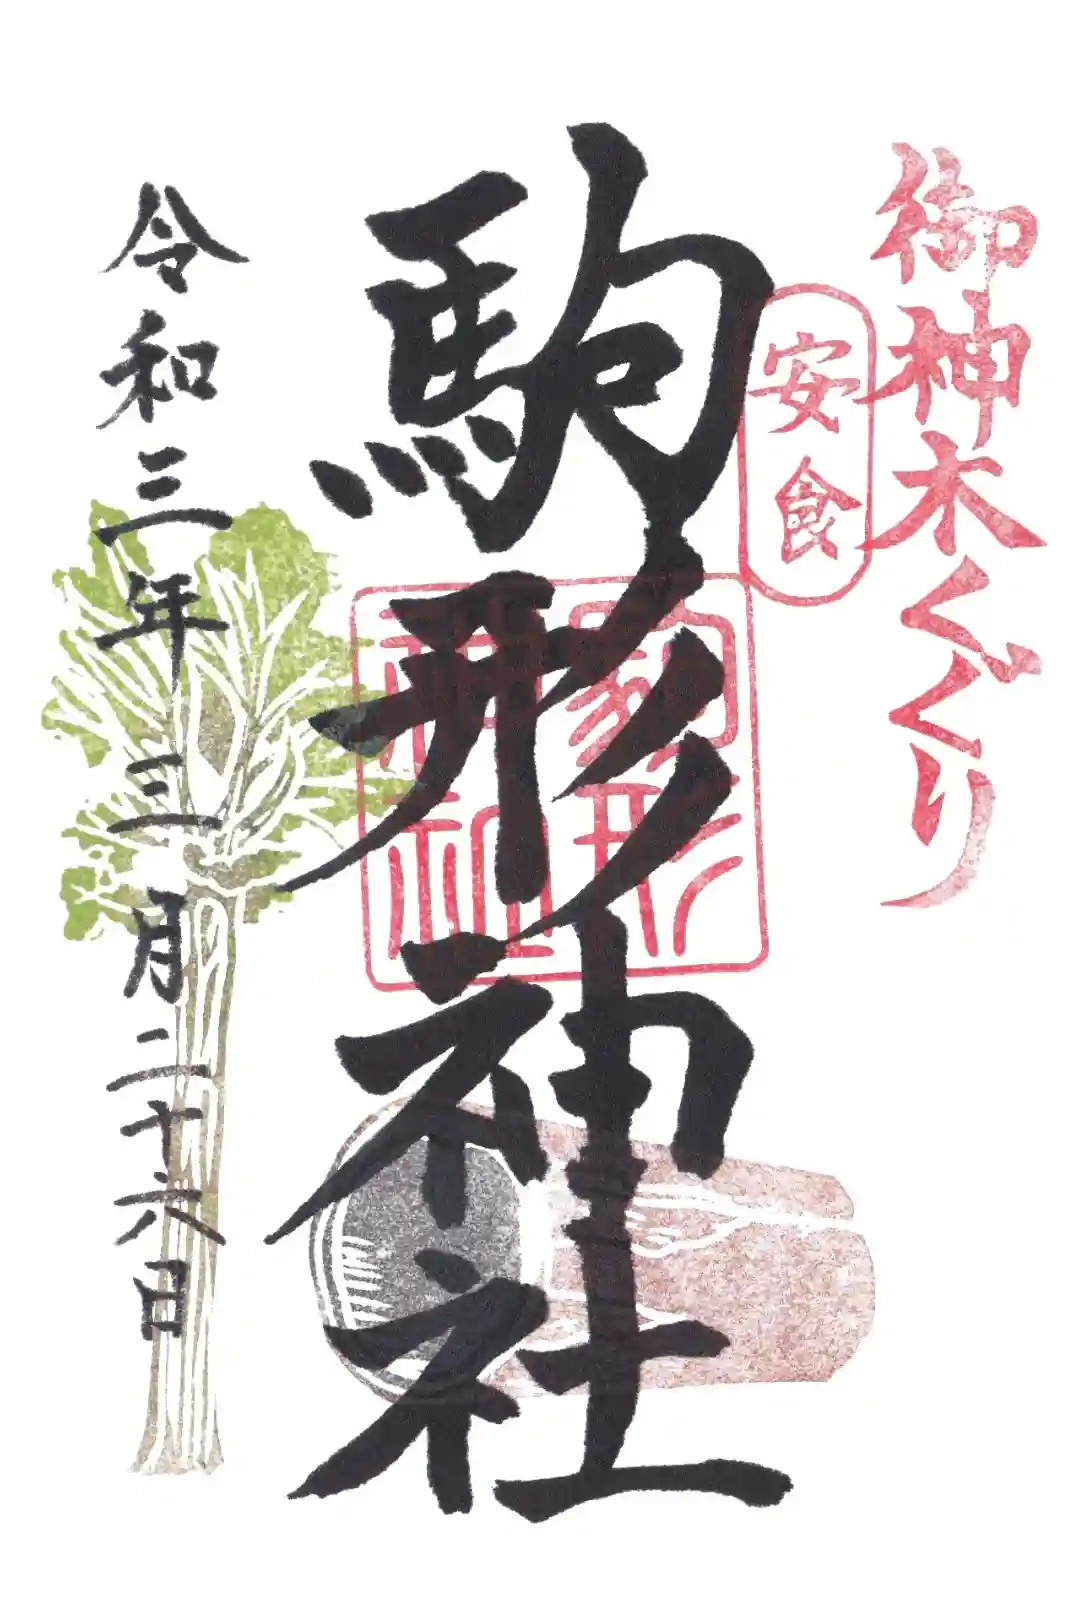 御神木くぐり
安食
駒形神社
駒形
神社
令和三年三月二十六日